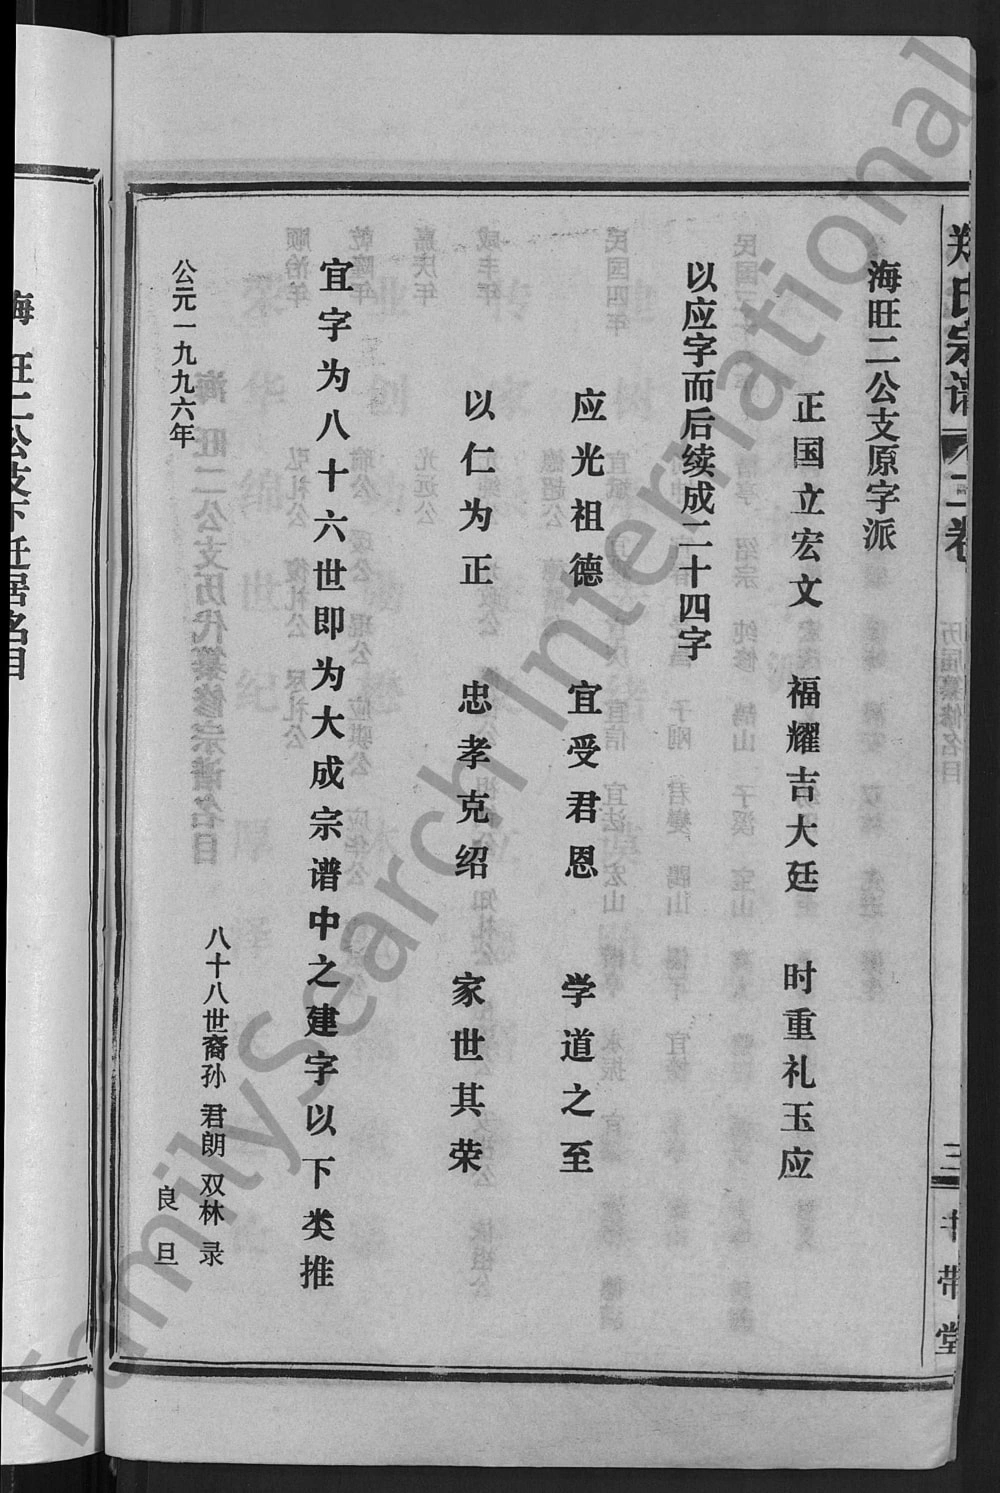 郑氏宗谱 二卷
三 书带堂
海旺二公支原字派
正国立宏文 福耀吉大廷 时重礼玉应
以应字而后续成二十四字
应光祖德 宜受君恩 学道之至
以仁为正 忠孝克绍 家世其荣
宜字为八十六世即为大成宗谱中之建字以下类推
八十八世裔孙 君朗 双林 录
公元一九九六年 良旦
海旺二公支下迁居名目
FamilySearch International